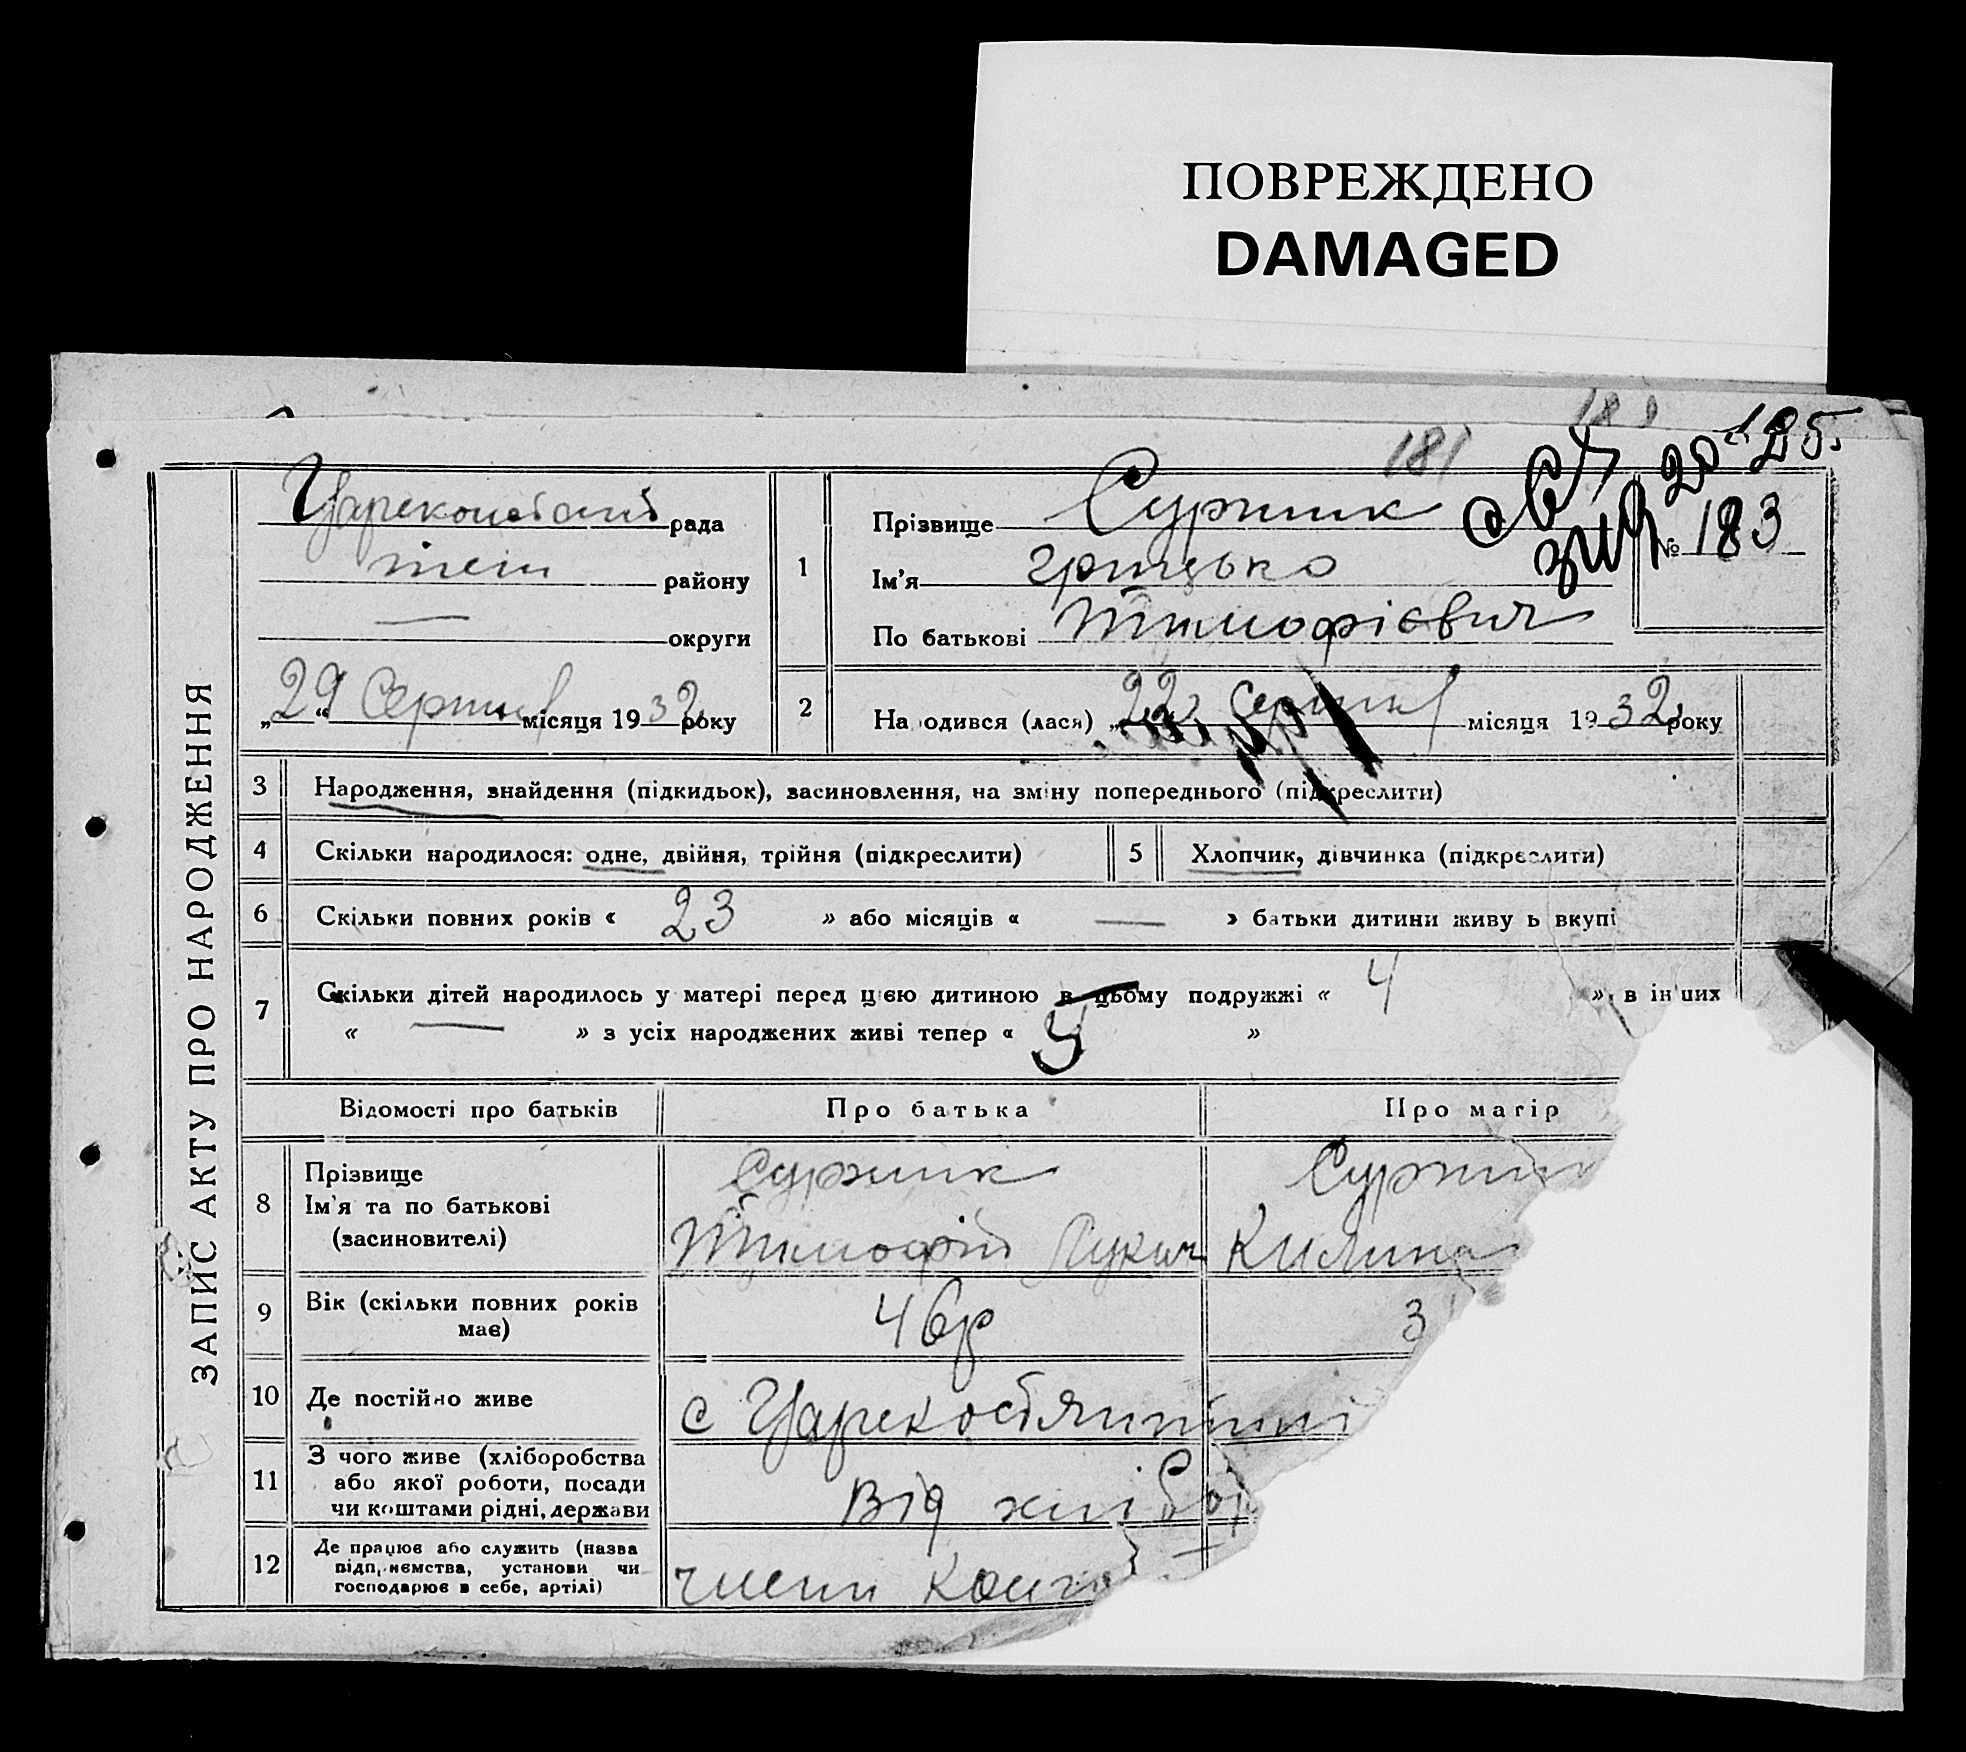 ПОВРЕЖДЕНО
DAMAGED
181
125
ЗАПИС АКТУ ПРО НАРОДЖЕННЯ
рада
району
округи
„29“ Серпня місяця 1932 року
1
Прізвище Суржик
Ім'я Грицько
По батькові Тимофієвич
№ 183
2
На одився (лася) „22 Серпня місяця 1932 року
3 Народження, знайдення (підкидьок), засиновлення, на зміну попереднього (підкреслити)
4 Скільки народилося: одне, двійня, трійня (підкреслити)
5 Хлопчик, дівчинка (підкреслити)
6 Скільки повних років « 23 » або місяців « — » батьки дитини живу ь вкупі
7 Скільки дітей народилось у матері перед цією дитиною в цьому подружжі « 4 » в інших
« — » з усіх народжених живі тепер « »
Відомості про батьків Про батька Про матір
8 Прізвище
Ім'я та по батькові
(засиновителі)
Суржик
Тимофій Лукич
Суржи
Килина
9 Вік (скільки повних років
має)
46р
3
10 Де постійно живе
с Царекостянтині
11 З чого живе (хліборобства
або якої роботи, посади
чи коштами рідні, держави
Від хлібор
12 Де працює або служить (назва
підп,иємства, установи чи
господарює в себе, артілі)
член